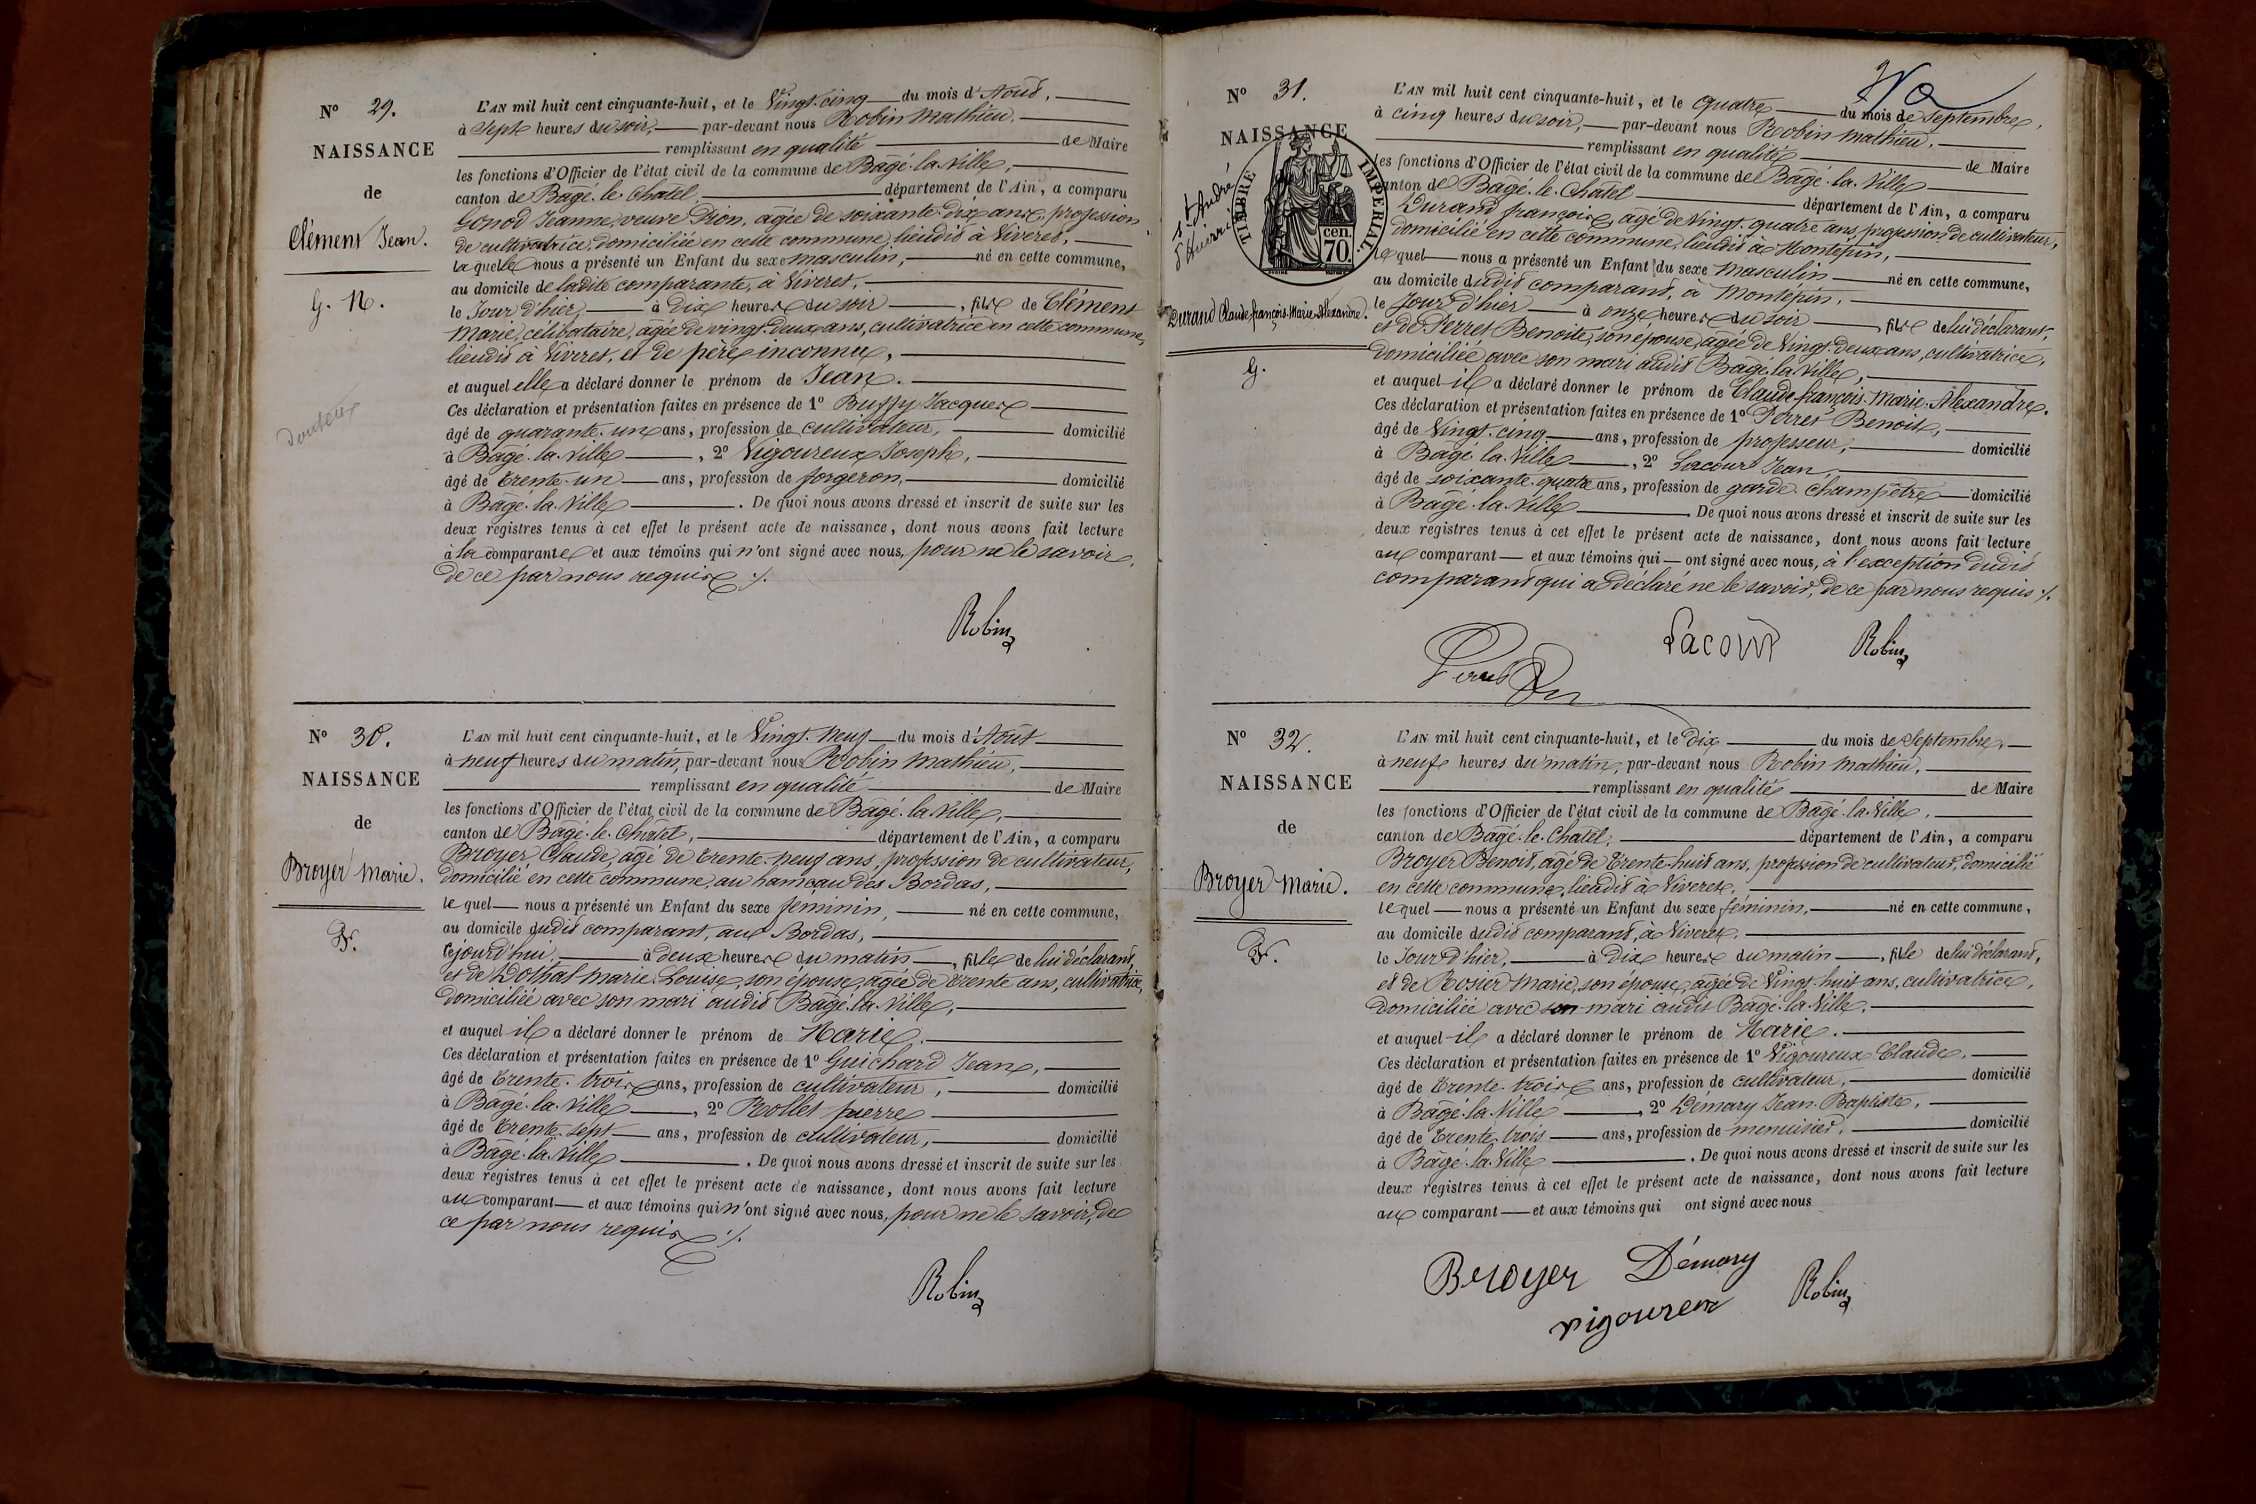 Nº 29.
NAISSANCE
de
Clément Jean.
G. N.
Douteux
L'AN mil huit cent cinquante-huit, et le Vingt-cinq du mois d'Août,
à Sept heures du soir, par-devant nous Robin Mathieu,
remplissant en qualité de Maire
les fonctions d'Officier de l'état civil de la commune de Bâgé-la-Ville,
canton de Bâgé-le-Chatel, département de l'Ain, a comparu
Gonod Jeanne, veuve Dion, agée de soixante-dix ans, profession
de cultivatrice, domiciliée en cette commune, lieudit à Viveret,
laquelle nous a présenté un Enfant du sexe masculin, né en cette commune,
au domicile de ladite comparante, à Viveret,
le Jour d'hier, à Dix heures du soir, fils de Clément
Marie, célibataire, agée de vingt-deux ans, cultivatrice en cette commune,
lieudit à Viveret, et de père inconnu,
et auquel elle a déclaré donner le prénom de Jean.
Ces déclaration et présentation faites en présence de 1º Buffy Jacques
âgé de quarante-un ans, profession de cultivateur, domicilié
à Bâgé-la-Ville, 2º Vigoureux Joseph,
âgé de trente-un ans, profession de forgeron, domicilié
à Bâgé-la-Ville. De quoi nous avons dressé et inscrit de suite sur les
deux registres tenus à cet effet le présent acte de naissance, dont nous avons fait lecture
à la comparante et aux témoins qui n'ont signé avec nous, pour ne le savoir,
de ce par nous requis ./.
Robin
Nº 30.
NAISSANCE
de
Broyer Marie.
F.
L'AN mil huit cent cinquante-huit, et le Vingt-neuf du mois d'Août
à neuf heures du matin, par-devant nous Robin Mathieu,
remplissant en qualité de Maire
les fonctions d'Officier de l'état civil de la commune de Bâgé-la-Ville,
canton de Bâgé-le-Châtel, département de l'Ain, a comparu
Broyer Claude, agé de trente-neuf ans, profession de cultivateur,
domicilié en cette commune, au hameau des Bordas,
lequel nous a présenté un Enfant du sexe féminin, né en cette commune,
au domicile dudit comparant, aux Bordas,
cejourd'hui, à deux heures du matin, fille de lui déclarant,
et de Dothal Marie-Louise, son épouse, agée de trente ans, cultivatrice,
domiciliée avec son mari audit Bâgé-la-Ville,
et auquel il a déclaré donner le prénom de Marie.
Ces déclaration et présentation faites en présence de 1º Guichard Jean,
âgé de trente-trois ans, profession de cultivateur, domicilié
à Bâgé-la-Ville, 2º Rollet pierre
âgé de trente-sept ans, profession de cultivateur, domicilié
à Bâgé-la-Ville. De quoi nous avons dressé et inscrit de suite sur les
deux registres tenus à cet effet le présent acte de naissance, dont nous avons fait lecture
au comparant et aux témoins qui n'ont signé avec nous, pour ne le savoir, de
ce par nous requis ./.
Robin
Nº 31.
NAISSANCE
TIMBRE IMPERIAL
cen. 70.
St André
d'Huiriat
Durand Claude-françois-Marie-Alexandre.
G.
L'AN mil huit cent cinquante-huit, et le quatre du mois de Septembre,
à cinq heures du soir, par-devant nous Robin Mathieu,
remplissant en qualité de Maire
les fonctions d'Officier de l'état civil de la commune de Bâgé-la-Ville
canton de Bâgé-le-Chatel département de l'Ain, a comparu
Durand françois, agé de Vingt-quatre ans, profession de cultivateur,
domicilié en cette commune, lieudit à Montépin,
lequel nous a présenté un Enfant du sexe masculin né en cette commune,
au domicile dudit comparant, à Montépin,
le Jour d'hier à onze heures du soir, fils de lui déclarant,
et de Perret Benoite, son épouse, agée de Vingt-deux ans, cultivatrice,
domiciliée avec son mari audit Bâgé-la-Ville,
et auquel il a déclaré donner le prénom de Claude-françois-Marie-Alexandre.
Ces déclaration et présentation faites en présence de 1º Perret Benoit,
âgé de Vingt-cinq ans, profession de professeur, domicilié
à Bâgé-la-Ville, 2º Lacour Jean,
âgé de soixante-quatre ans, profession de garde-champêtre domicilié
à Bâgé-la-Ville. De quoi nous avons dressé et inscrit de suite sur les
deux registres tenus à cet effet le présent acte de naissance, dont nous avons fait lecture
au comparant et aux témoins qui ont signé avec nous, à l'exception dudit
comparant qui a déclaré ne le savoir, de ce par nous requis ./.
Lacour Robin
Nº 32.
NAISSANCE
de
Broyer Marie.
F.
L'AN mil huit cent cinquante-huit, et le dix du mois de Septembre,
à neuf heures du matin, par-devant nous Robin Mathieu,
remplissant en qualité de Maire
les fonctions d'Officier de l'état civil de la commune de Bâgé-la-Ville,
canton de Bâgé-le-Chatel, département de l'Ain, a comparu
Broyer Benoit, agé de trente-huit ans, profession de cultivateur, domicilié
en cette commune, lieudit à Viveret,
lequel nous a présenté un Enfant du sexe féminin, né en cette commune,
au domicile dudit comparant, à Viveret,
le Jour d'hier, à dix heures du matin, fille de lui déclarant,
et de Rosier Marie, son épouse, agée de Vingt-huit ans, cultivatrice,
domiciliée avec son mari audit Bâgé-la-Ville.
et auquel il a déclaré donner le prénom de Marie.
Ces déclaration et présentation faites en présence de 1º Vigoureux Claude,
âgé de trente-trois ans, profession de cultivateur, domicilié
à Bâgé-la-Ville, 2º Démary Jean-Baptiste,
âgé de trente-trois ans, profession de menuisier, domicilié
à Bâgé-la-Ville. De quoi nous avons dressé et inscrit de suite sur les
deux registres tenus à cet effet le présent acte de naissance, dont nous avons fait lecture
au comparant et aux témoins qui ont signé avec nous
Broyer Démary
vigoureux Robin